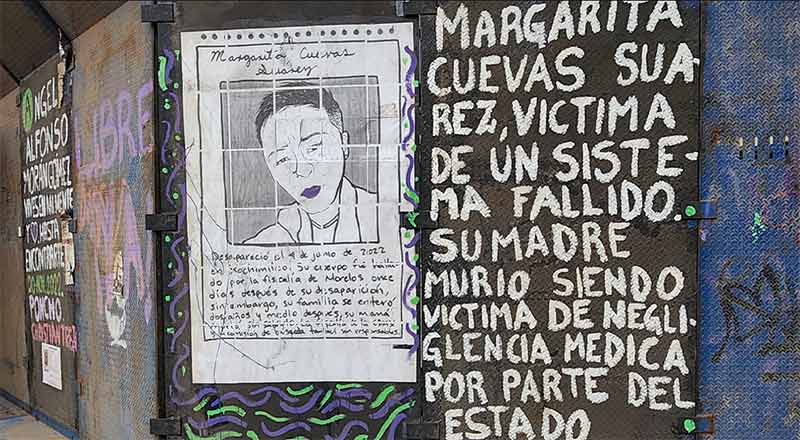 ANGEL
ALFONSO
MORAN GOMEZ
HASTA
ENCONTRARTE
PONCHO
LIBRE
Margarita Cuevas
Suarez
Desapareció el 4 de junio de 2022
en Xochimilco. Su cuerpo fue halla-
do por la fiscalía de Morelos once
días después de su desaparición,
sin embargo, su familia se enteró
dos años y medio después, su mamá
MARGARITA
CUEVAS SUA-
REZ, VICTIMA
DE UN SISTE-
MA FALLIDO.
SU MADRE
MURIO SIENDO
VICTIMA DE NEGLI-
GLENCIA MEDICA
POR PARTE DEL
ESTADO